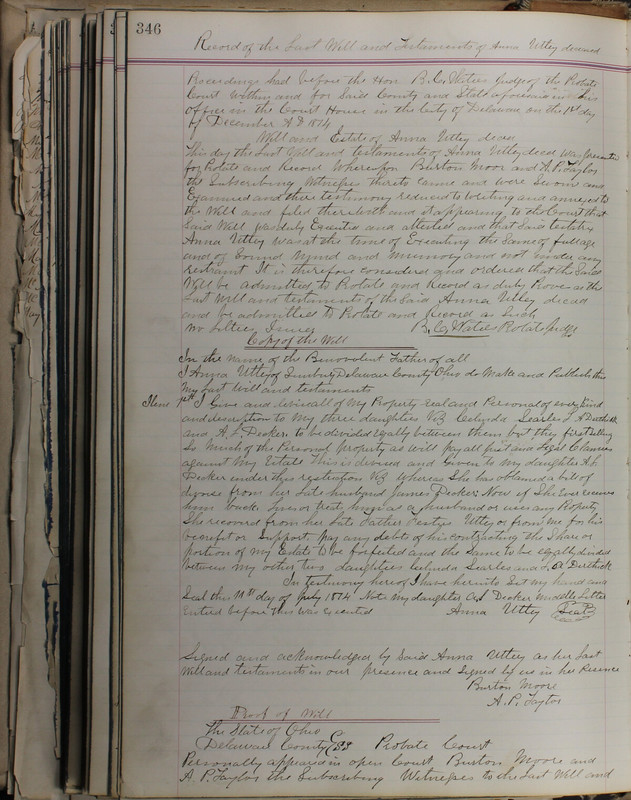 346
Record of the Last Will and Testaments of Anna Uttey deceased
Proceedings had before the Hon B. C. Waters Judge of the Probate
Court within and for Said County and State aforesaid in his
Office in the Court House in the City of Delaware on the 1st day
of December A.D 1874
Will and Estate of Anna Uttey decd
This day the Last Will and testaments of Anna Uttey decd was presented
for Probate and Record Whereupon Burton Moore and A. P. Taylor
the Subscribing Witnesses thereto came and were Sworn and
Examined and there testimony reduced to writing and annexed to
the Will and filed therewith and it appearing to the Court that
Said Will was duly Executed and attested and that Said testatrix
Anna Uttey was at the time of Executing the Same of full age
and of Sound Mind and Memory and not under any
restraint It is therefore considered and ordered that the Said
Will be admitted to Probate and Record as duly Proven as the
Last Will and testaments of the Said Anna Uttey decd
and be admitted to Probate and Record as Such
No Letters Issued B. C. Waters Probate Judge
Copy of the Will
In the name of the Benevolent Father of all
I Anna Uttey of Sunbury Delaware County Ohio do Make and Publish this
My Last Will and testaments
Item 1st I Give and devise all of My Property real and Personal of every kind
and description to My three daughters Viz Celynda Searles L. A Derthick
and A. L. Decker. to be divided egally between them but they first Selling
So Much of the Personal Property as will pay all just and Legal Claimes
against My Estate This is devised and Given to my daughter A. L
Decker under this restriction Viz Whereas She has obtained a bill of
divorse from her Late husband James Decker Now if She Ever receives
him back lives or treat him as a husband or uses any Property
She received from her Late Father Uttey or from me for his
benefit or Support pay any debts of his contracting the Share or
portion of My Estate to be forfeited and the Same to be egally divided
between my other two daughters Celynda Searles and L. A Derthick
In testimony here of I have hereunto Set my hand and
Seal this 11th day of July 1874 Note My daughter A. L Decker middle Letter
Entred before this was Executed Anna Uttey Seal
Signed and acknowledged by Said Anna Uttey as her Last
Will and testaments in our presence and Signed by us in her Presence
Burton Moore
A. P. Taylor
Proof of Will
The State of Ohio
Delaware County SS Probate Court
Personally appeared in open Court Burton Moore and
A. P. Taylor the Subscribing Witnesses to the Last Will and